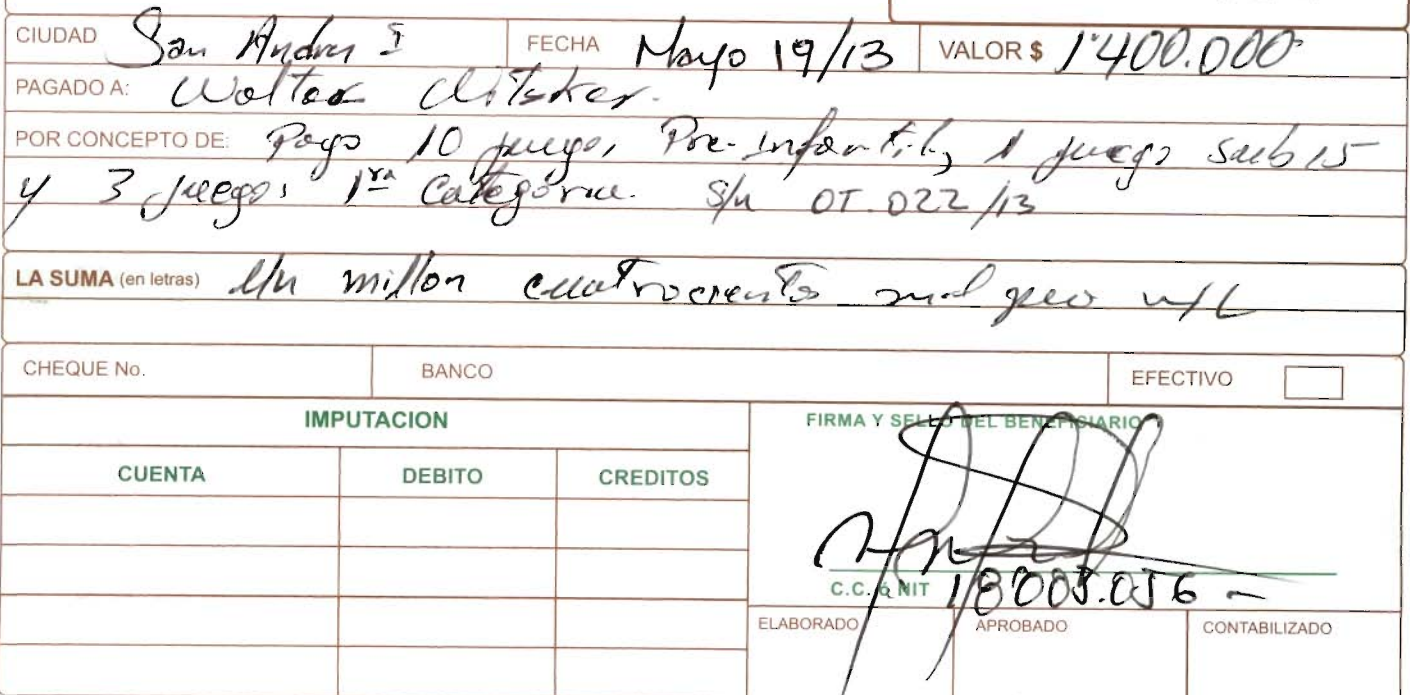 CIUDAD San Andres I FECHA Mayo 19/13 VALOR $ 1'400.000
PAGADO A: Walter
POR CONCEPTO DE: Pago 10 juegos Pre-Infantil, 1 juego sub 15
y 3 juegos 1ra Categoria. s/n OT.022/13
LA SUMA (en letras) Un millon cuatrocientos mil pesos m/L
CHEQUE No. BANCO EFECTIVO
IMPUTACION FIRMA Y SELLO DEL BENEFICIARIO
CUENTA DEBITO CREDITOS
C.C. ó NIT 18005.056
ELABORADO APROBADO CONTABILIZADO